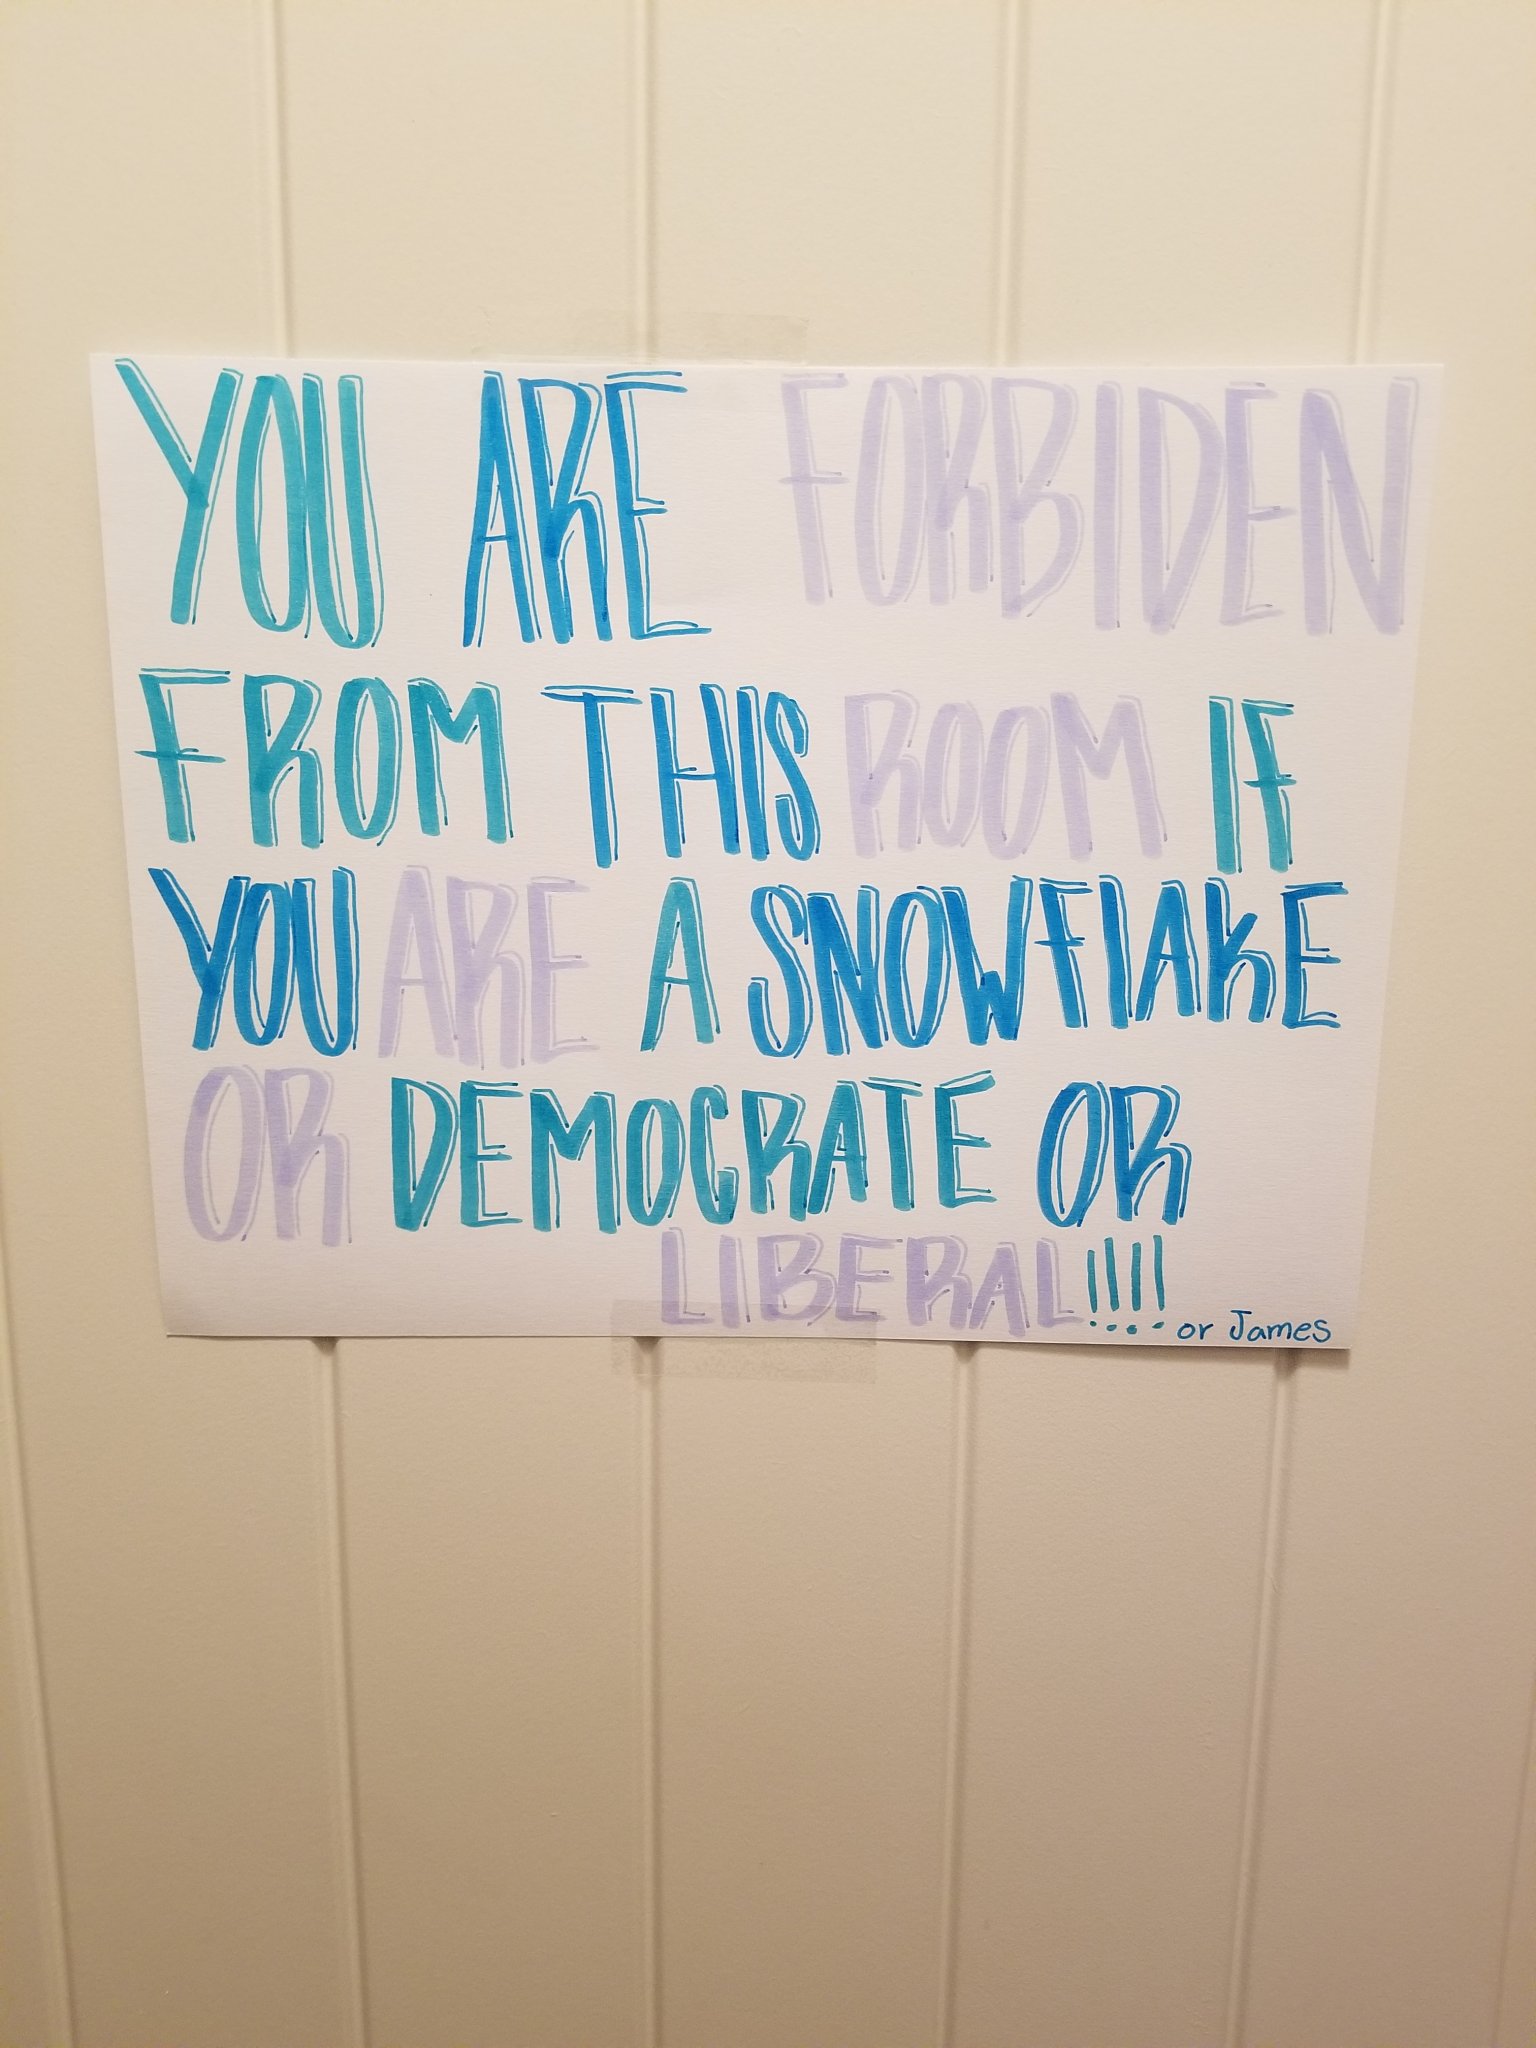 YOU ARE FORBIDEN
FROM THIS ROOM IF
YOU ARE A SNOWFlAKE
OR DEMOCRATE OR
LIBERAL!!!! or James